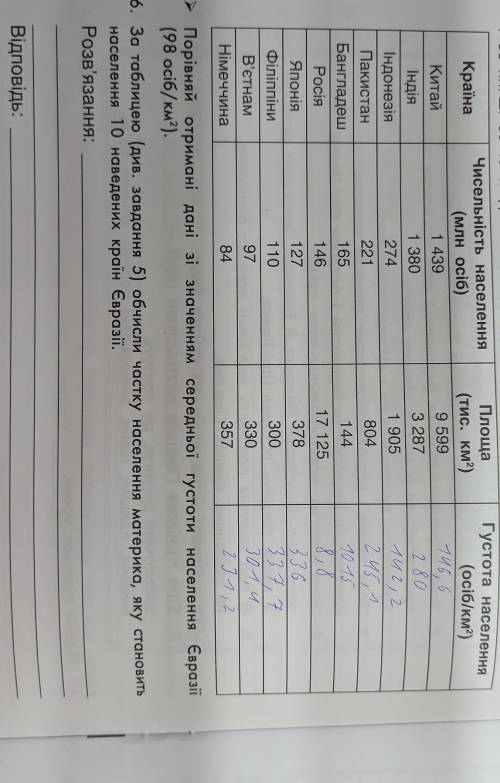 Країна Чисельність населення (млн осіб) Площа (тис. км²) Густота населення (осіб/км²)
Китай 1 439 9 599 146,6
Індія 1 380 3 287 280
Індонезія 274 1 905 142,2
Пакистан 221 804 245,1
Бангладеш 165 144 1015
Росія 146 17 125 8,8
Японія 127 378 336
Філіппіни 110 300 337,7
В'єтнам 97 330 301,4
Німеччина 84 357 231,2
➤ Порівняй отримані дані зі значенням середньої густоти населення Євразії
(98 осіб/км²).
6. За таблицею (див. завдання 5) обчисли частку населення материка, яку становить
населення 10 наведених країн Євразії.
Розв'язання:
Відповідь: